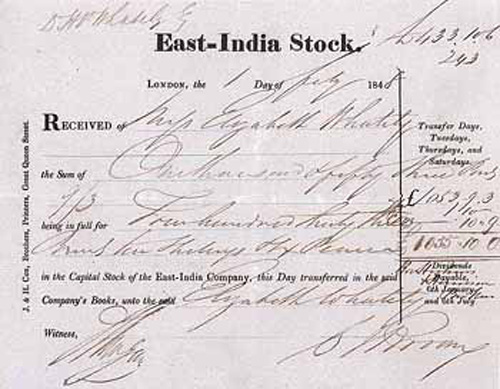 £433.10.6
243
East-India Stock.
London, the 1 Day of July 1848
Received of Miss Elizabeth Whately
the Sum of One thousand & fifty three Pounds
9/3
being in full for Four hundred thirty three
Pounds ten Shillings Six Pence
in the Capital Stock of the East-India Company, this Day transferred in the said
Company's Books, unto the said Elizabeth Whately
Witness,
Transfer Days,
Tuesdays,
Thursdays, and
Saturdays.
£1053.9.3
Dividends
Payable,
5th January
and 6th July
J. & H. Cox, Brothers, Printers, Great Queen Street.